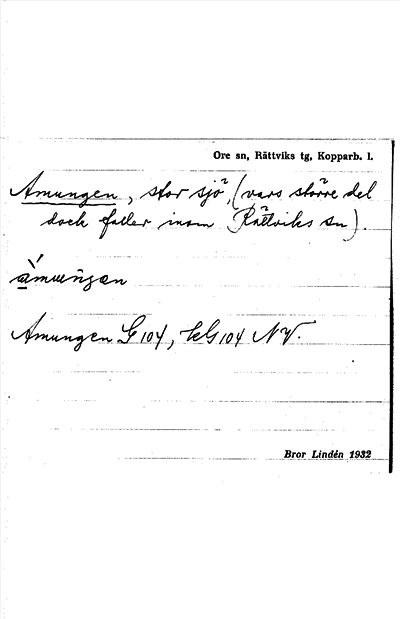 Ore sn, Rättviks tg, Kopparb. l.
Amungen, stor sjö, (vars större del
dock faller inom Rättviks sn).
Amungen G 104, NV.
Bror Lindén 1932